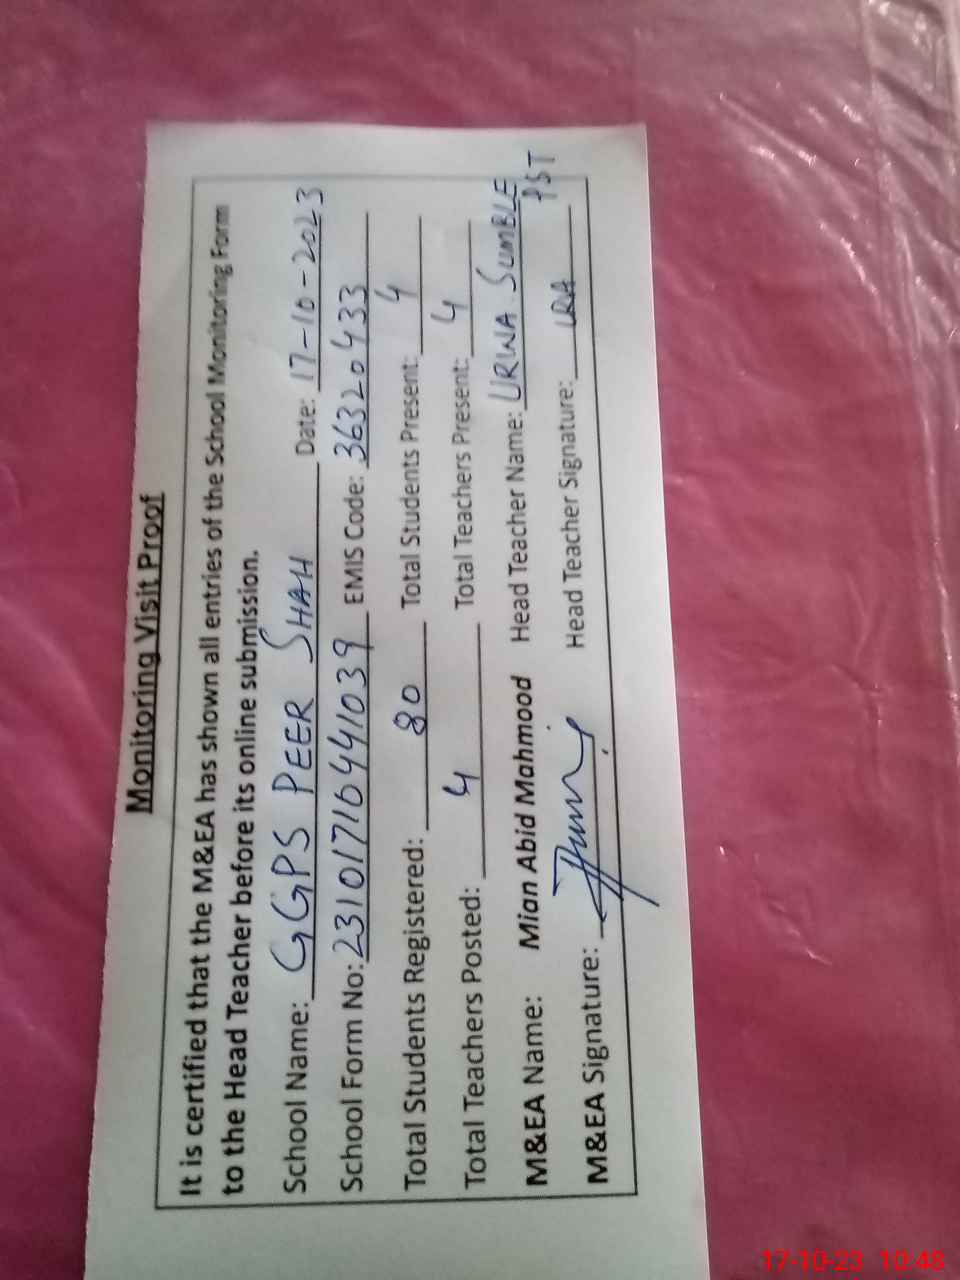 Monitoring Visit Proof
It is certified that the M&EA has shown all entries of the School Monitoring Form
to the Head Teacher before its online submission.
School Name: GGPS PEER SHAH Date: 17-10-2023
School Form No: 23101716441039 EMIS Code: 36320433
Total Students Registered: 80 Total Students Present: 4
Total Teachers Posted: 4 Total Teachers Present: 4
M&EA Name: Mian Abid Mahmood Head Teacher Name: URWA SUMBLE
PST
M&EA Signature: Head Teacher Signature:
17-10-23 10:48